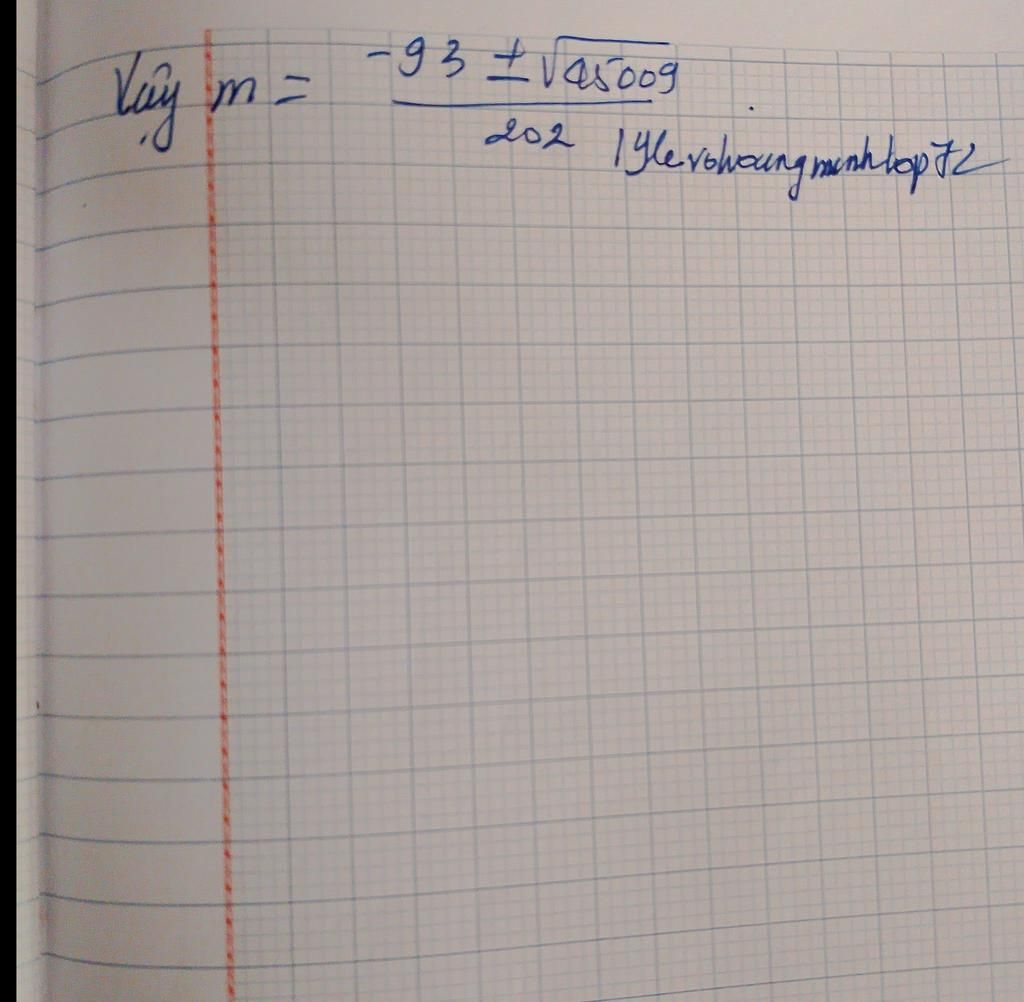 Vậy m = \frac{-93 \pm \sqrt{45009}}{202} .